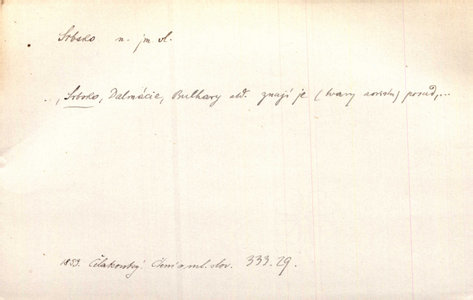 Srbsko n. jm vl.
„ Srbsko, Dalmácie, Bulhary atd. znají je (tvary aoristu) posud,...
1853. Čelakovský Čtení o ml. slov. 333.29.